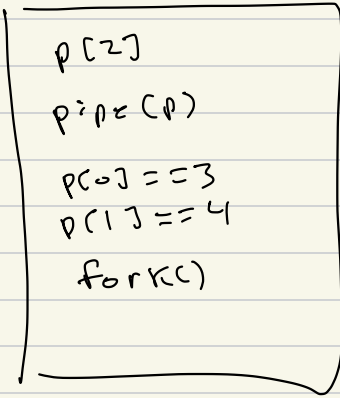 p[2]
pipe(p)
p[0] == 3
p[1] == 4
fork()